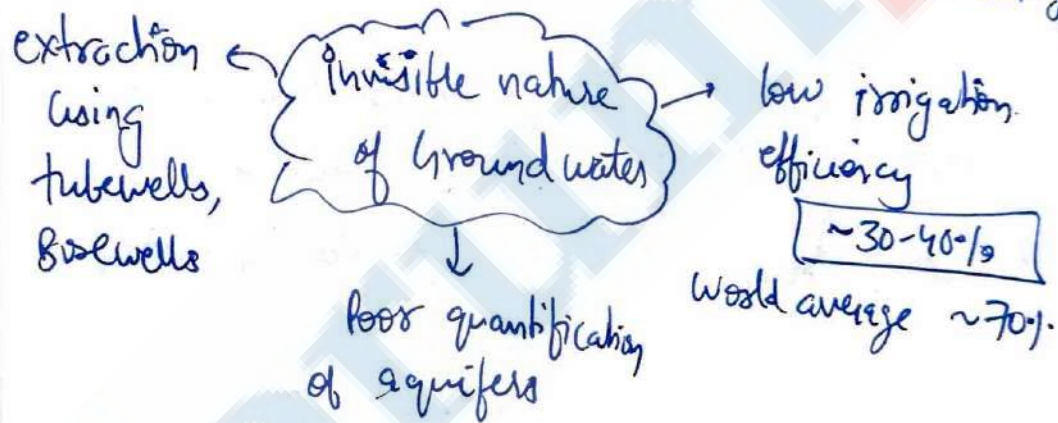 extraction
using
tubewells,
Borewells
invisible nature
of Groundwater
low irrigation
efficiency
~30-40%
World average ~70%.
Poor quantification
of aquifers